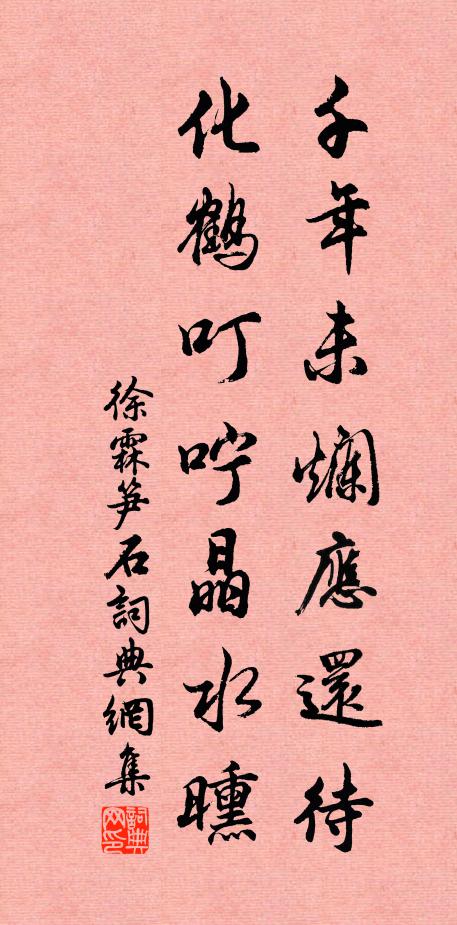 千年未爛應還待
化鶴叮咛晶水曛
徐霖笋石詞典網集
詞典网印